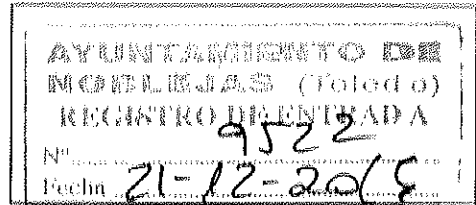 AYUNTAMIENTO DE
NOBLEJAS (Toledo)
REGISTRO DE ENTRADA
Nº 9522
Fecha 21-12-2018